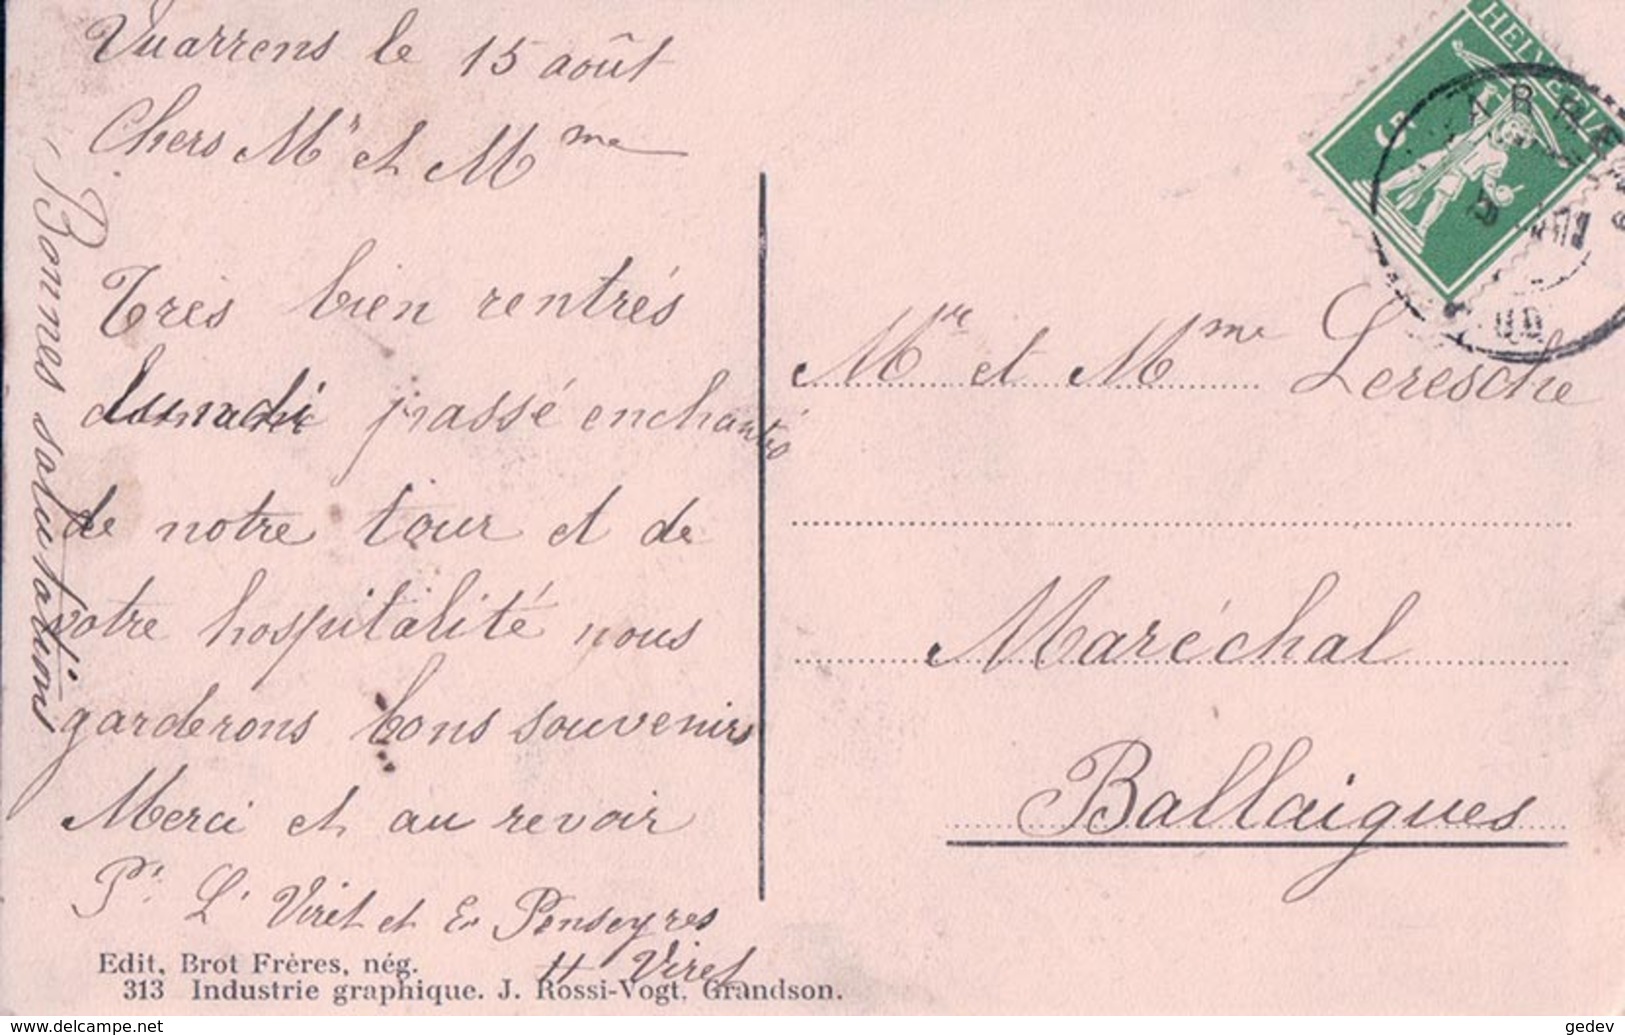 Vuarrens le 15 août
Chers Mr et Mme
Très bien rentrés
lundi passé enchantés
de notre tour et de
votre hospitalité nous
garderons bons souvenirs
Merci et au revoir
Pr. L' Viret et Es Penseyres
H Viret
Bonnes salutations
HELVETIA
5
Mr et Mme Leresche
Maréchal
Ballaigues
Edit. Brot Frères, nég.
313 Industrie graphique. J. Rossi-Vogt, Grandson.
www.delcampe.net
gedev